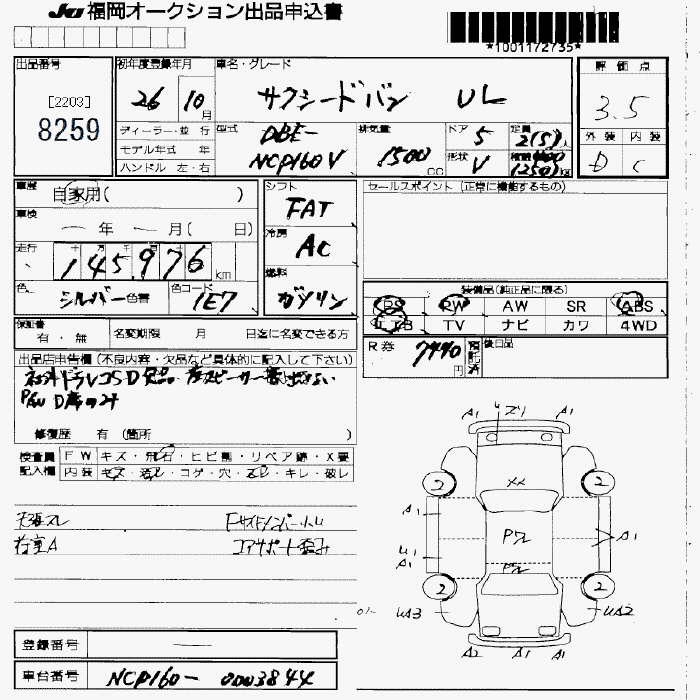 JU 福岡オークション出品申込書
*1001172735*
出品番号
[2203]
8259
初年度登録年月
26 10 月
車名・グレード
サクシードバン UL
評価点
3.5
外装 内装
D C
ディーラー・並行
モデル年式 年
ハンドル 左・右
型式
DBE-
NCP160V
排気量
1500 cc
ドア 5
形状 V
定員
2(5)人
車歴
自家用( )
車検
ー年ー月( 日)
走行
145,976 km
色
シルバー 色替
色コード
1E7
シフト
FAT
冷房
AC
燃料
ガソリン
セールスポイント (正常に機能するもの)
装備品(純正品に限る)
PS PW AW SR ABS
TV ナビ カワ 4WD
保証書
有・無
名変期限 月 日迄に名変できる方
R券
7440 円
預託済
後日品
出品店申告欄 (不良内容・欠品など具体的に記入して下さい)
修復歴 有 (箇所 )
検査員記入欄
FW キズ・飛石・ヒビ割・リペア跡・X要
内装 キズ・汚れ・コゲ・穴・スレ・キレ・破レ
天張スレ
荷室A
FサイドメンバートU
コアサポート歪み
A1 A1
2 2
XX
A1
P2
A1
U1
A1
2 2
UA3 UA2
A2 A1 A1
登録番号 ー
車台番号 NCP160-0003844